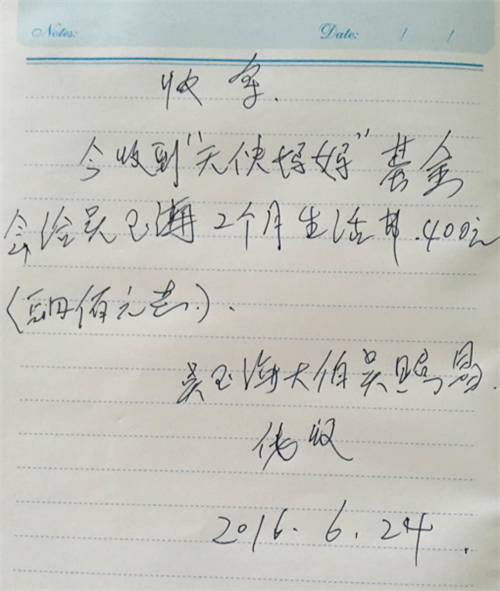 Notes: Date: / /
收条.
今收到"天使妈妈"基金
会给吴玉海2个月生活费.400元
(肆佰元整.).
吴玉海大伯吴
代收
2016.6.24.